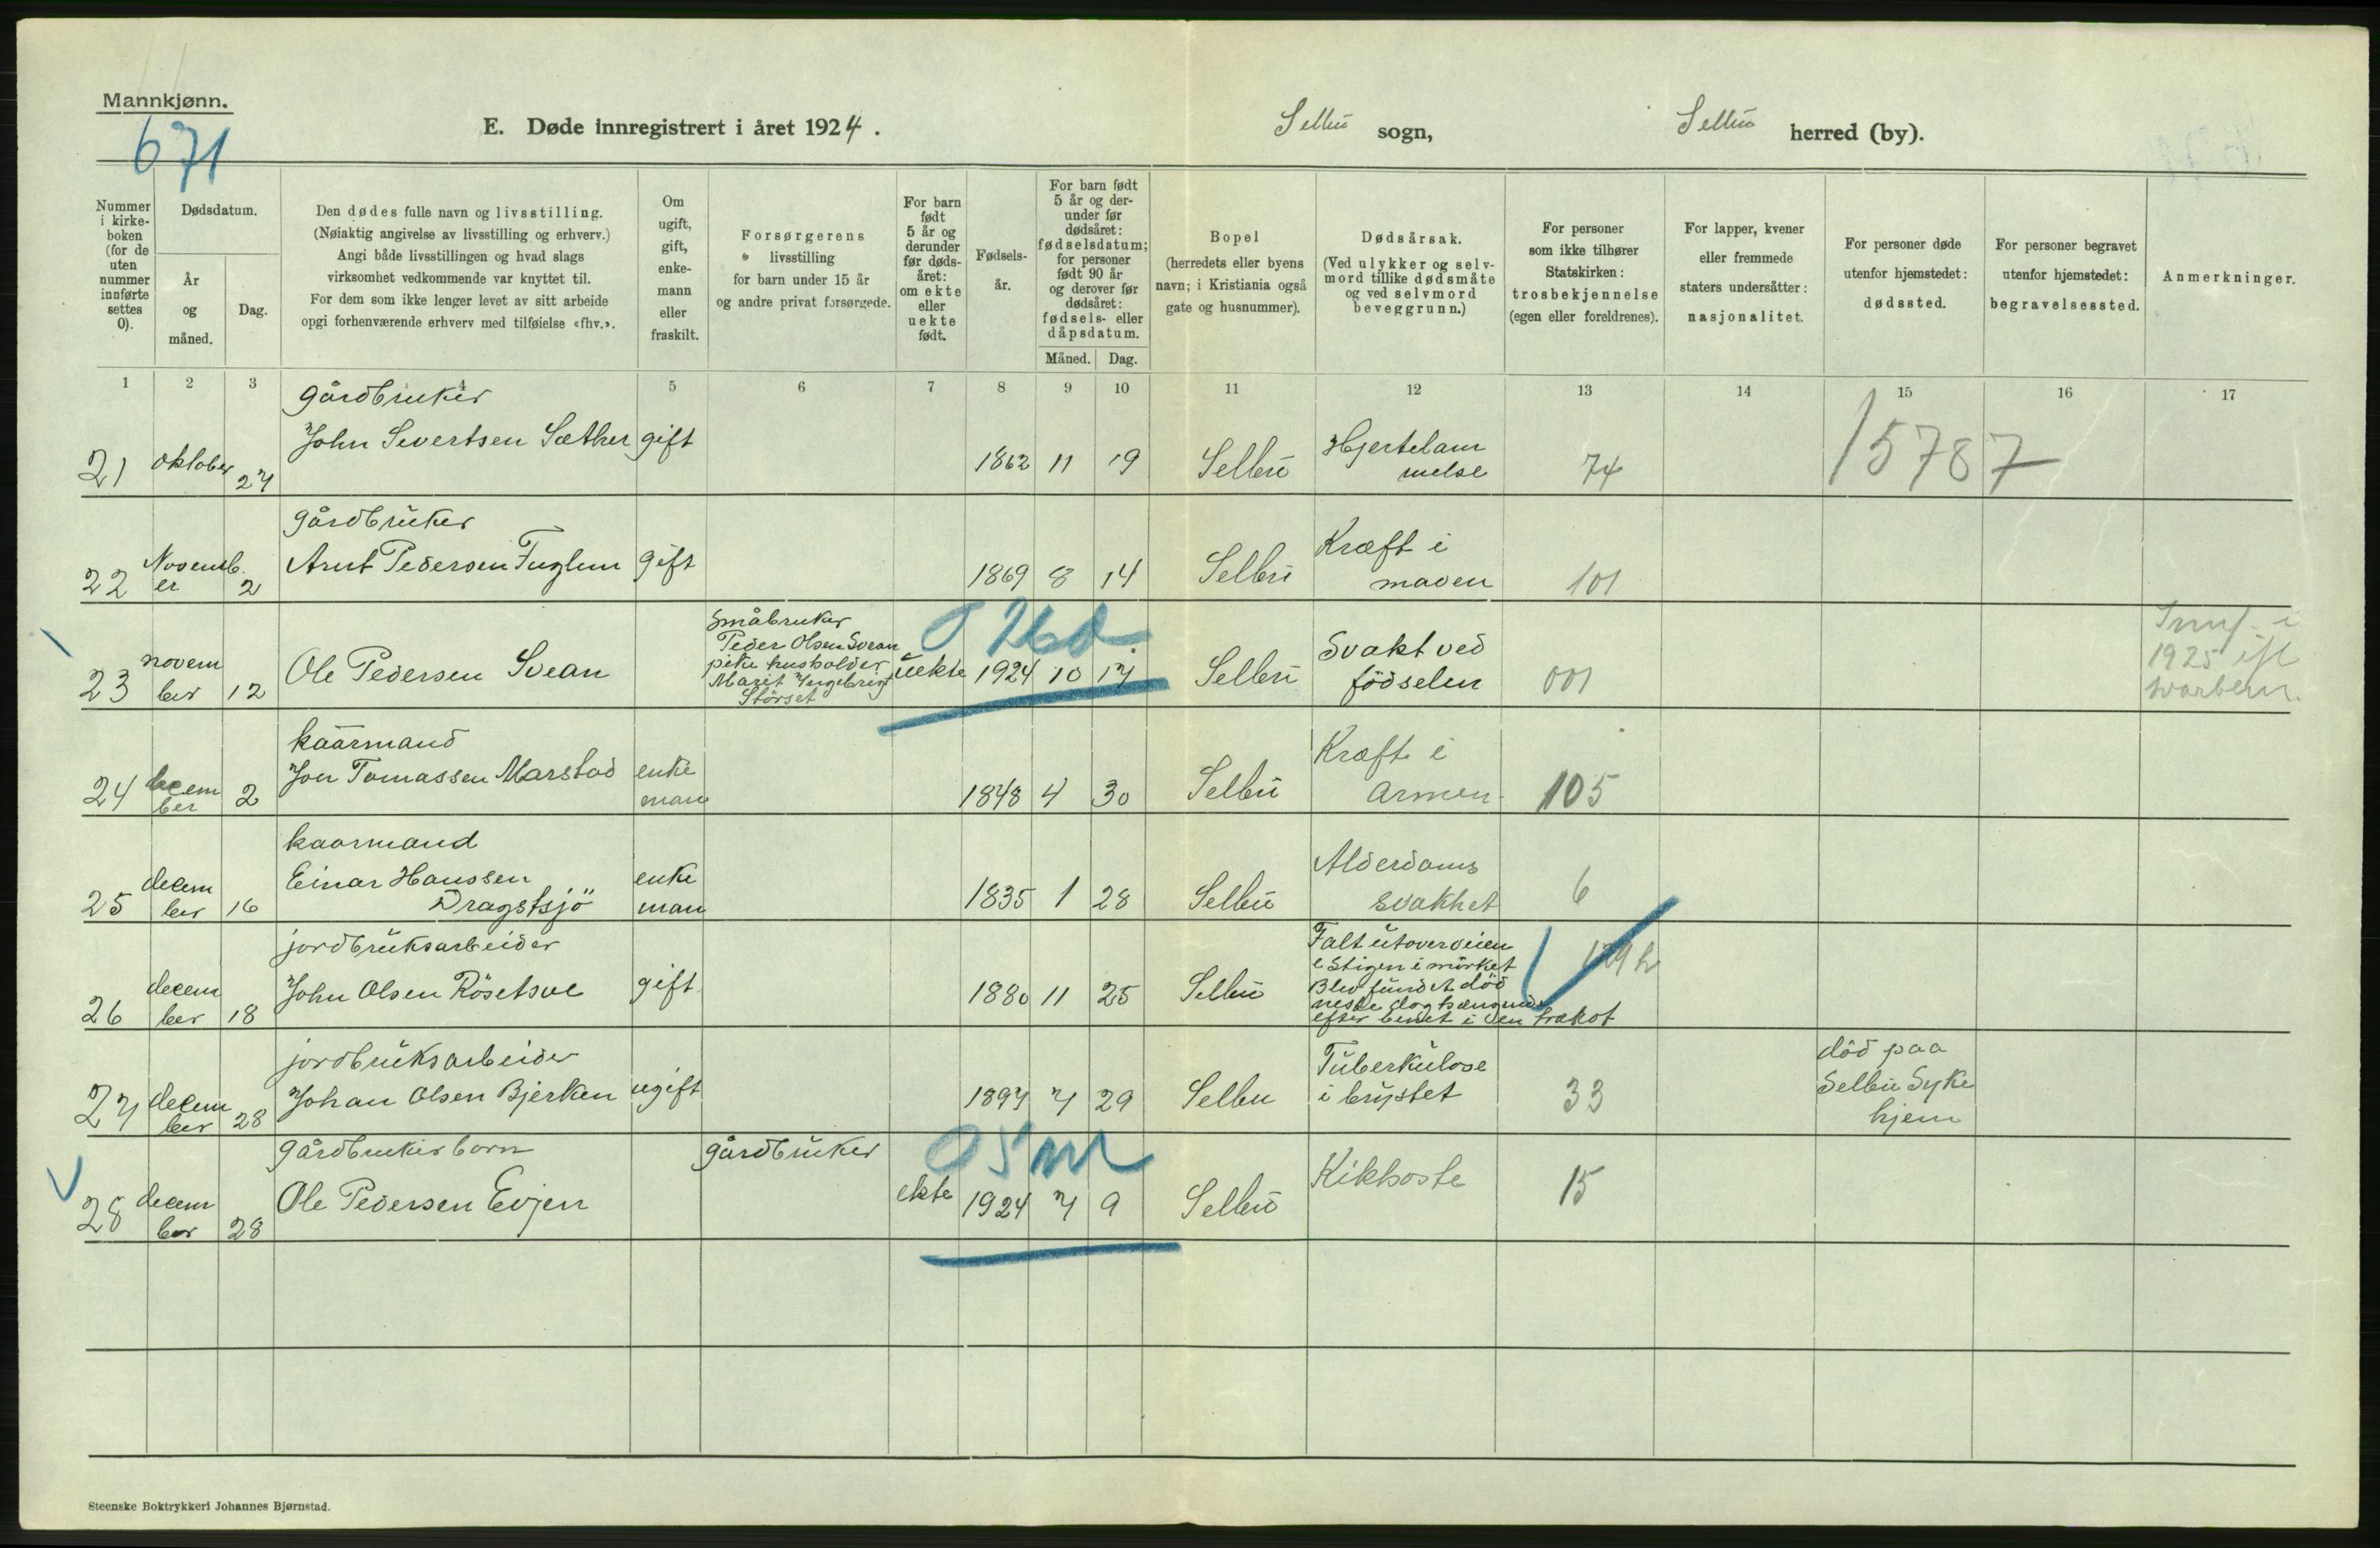 Mannkjønn.
671
E. Døde innregistrert i året 1924.
Selbu sogn,
Selbu herred (by).
Nummer i kirke- boken (for de uten nummer innførte settes 0).
Dødsdatum.
År og måned.
Dag.
Den dødes fulle navn og livsstilling.
(Nøiaktig angivelse av livsstilling og erhverv.)
Angi både livsstillingen og hvad slags
virksomhet vedkommende var knyttet til.
For dem som ikke lenger levet av sitt arbeide
opgi forhenværende erhverv med tilføielse «fhv.».
Om ugift, gift, enke- mann eller fraskilt.
Forsørgerens
livsstilling
for barn under 15 år
og andre privat forsørgede.
For barn født 5 år og derunder før døds- året: om ekte eller uekte født.
Fødsels- år.
For barn født 5 år og der- under før dødsåret: fødselsdatum; for personer født 90 år og derover før dødsåret: fødsels- eller dåpsdatum.
Måned.
Dag.
Bopel
(herredets eller byens
navn; i Kristiania også
gate og husnummer).
Dødsårsak.
(Ved ulykker og selv-
mord tillike dødsmåte
og ved selvmord
beveggrunn.)
For personer
som ikke tilhører
Statskirken:
trosbekjennelse
(egen eller foreldrenes).
For lapper, kvener
eller fremmede
staters undersåtter:
nasjonalitet.
For personer døde
utenfor hjemstedet:
dødssted.
For personer begravet
utenfor hjemstedet:
begravelsessted.
Anmerkninger.
1 2 3 4 5 6 7 8 9 10 11 12 13 14 15 16 17
gårdbruker
21 oktober 27 John Severtsen Sæther gift 1862 11 19 Selbu Hjertelam
melse 74
15787
gårdbruker
22 Novemb.
er 2 Arnt Pedersen Fuglem gift 1869 8 14 Selbu Kræft i
maven 101
23 novem
ber 12 Ole Pedersen Svean
småbruker
Peder Olsen Svean
pike husholder
Marit Ingebrigt
Störset
uekte 1924 10 17 Selbu
O 26d
Svakt ved
födselen 001
1925 ifl
kaarmand
24 decem
ber 2 Jon Tomassen Marstad enke
man 1848 4 30 Selbu Kræft i
Armen 105
kaarmand
25 decem
ber 16 Einar Hanssen
Dragstsjö enke
man 1835 1 28 Selbu Alderdoms
svakhet 6
jordbruksarbeider
26 decem
ber 18 John Olsen Rösetsve gift 1880 11 25 Selbu
Falt utover veien
e Stigen i mörket
Blev fundet död
neste dag
efter benet i den
jordbruksarbeider
27 decem
ber 28 Johan Olsen Bjerken ugift 1897 7 29 Selbu Tuberkulose
i brystet 33
död paa
Selbu Syke
hjem
gårdbrukerbarn
28 decem
ber 28 Ole Pedersen Evjen gårdbruker ekte 1924 7 9 Selbu Kikhoste 15
O 5m
Steenske Boktrykkeri Johannes Bjørnstad.